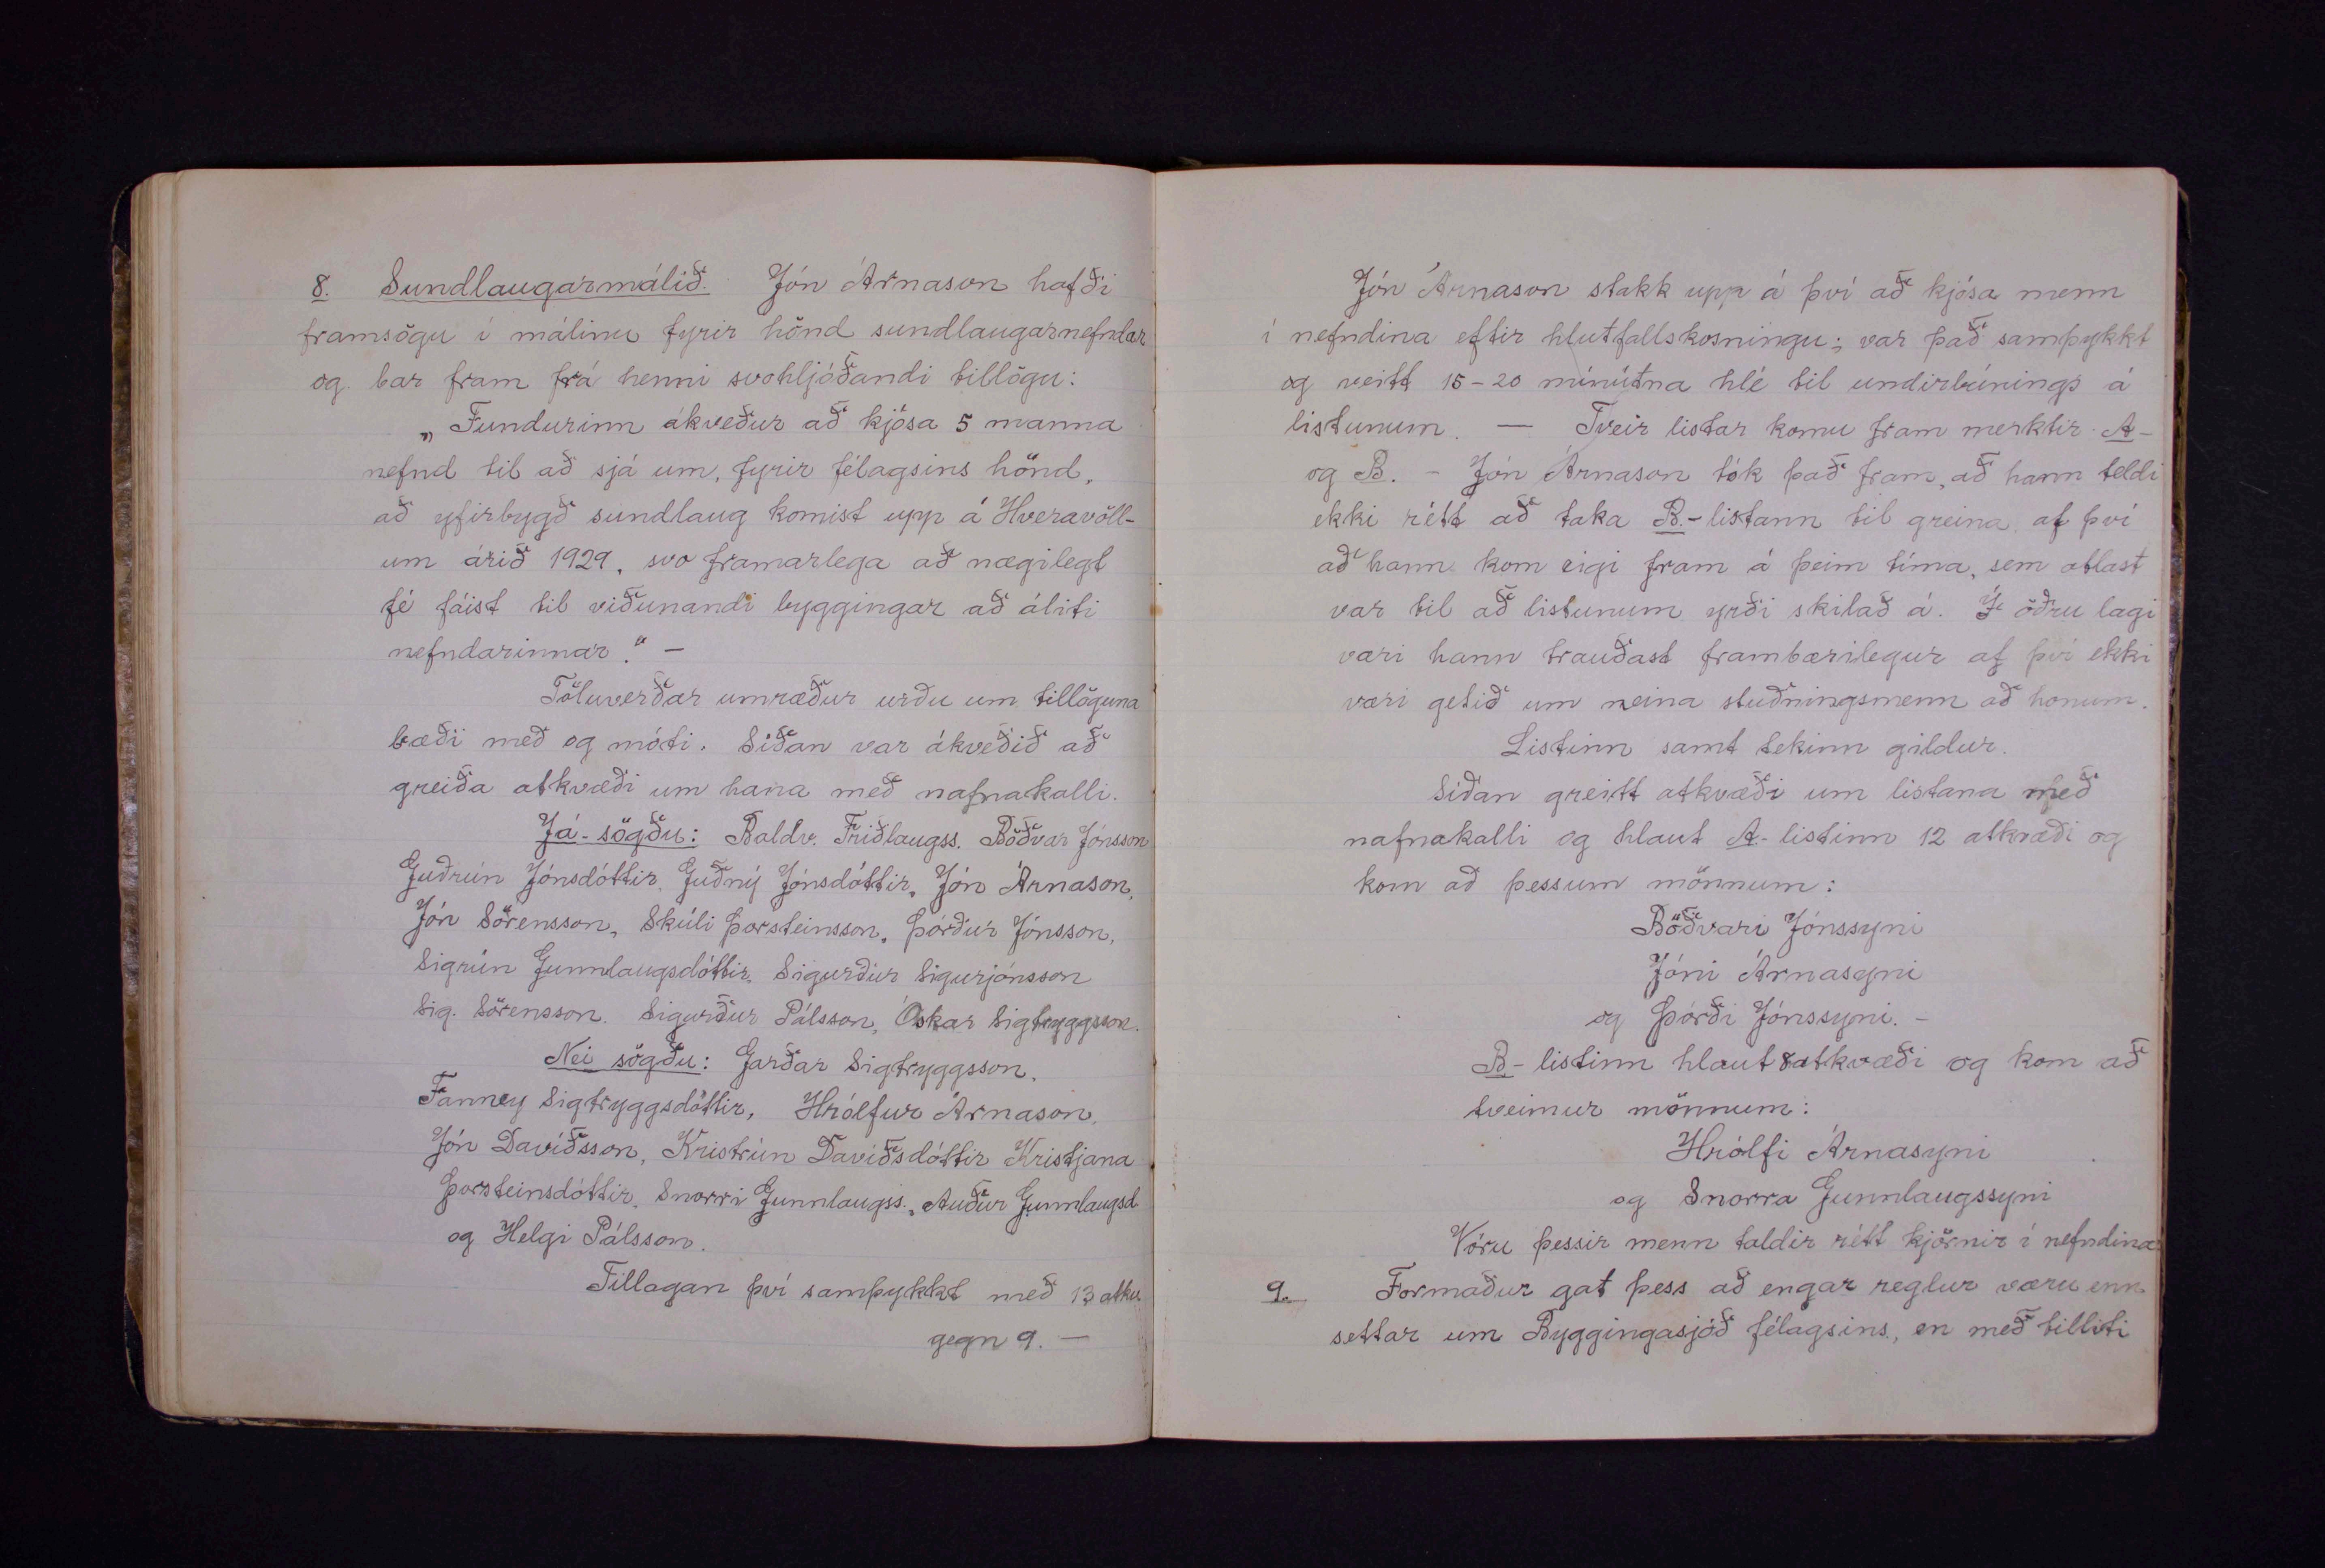 8. Sundlaugarmálið. Jón Árnason hafði
framsögu í málinu fyrir hönd sundlaugarnefndar
og bar fram frá henni svohljóðandi tillögu:
„Fundurinn ákveður að kjósa 5 manna
nefnd til að sjá um, fyrir félagsins hönd,
að yfirbygð sundlaug komist upp á Hveravöll-
um árið 1929, svo framarlega að nægilegt
fé fáist til viðunandi byggingar að áliti
nefndarinnar." –
Töluverðar umræður urðu um tillöguna
bæði með og móti. Síðan var ákveðið að
greiða atkvæði um hana með nafnakalli.
Já-sögðu: Baldv. Friðlaugss. Böðvar Jónsson
Guðrún Jónsdóttir, Guðný Jónsdóttir, Jón Árnason,
Jón Sörensson, Skúli Þorsteinsson, Þórður Jónsson,
Sigrún Gunnlaugsdóttir, Sigurður Sigurjónsson
Sig. Sörensson. Sigurður Pálsson, Óskar Sigtryggsson.
Nei sögðu: Garðar Sigtryggsson,
Fanney Sigtryggsdóttir, Hrólfur Árnason,
Jón Davíðsson, Kristrún Davíðsdóttir Kristjana
Þorsteinsdóttir, Snorri Gunnlaugss., Auður Gunnlaugsd
og Helgi Pálsson.
Tillagan því samþykkt með 13 atkv.
gegn 9. –
Jón Árnason stakk upp á því að kjósa menn
í nefndina eftir hlutfallskosningu; var það samþykkt
og veitt 15-20 mínútna hlé til undirbúnings á
listunum. — Tveir listar komu fram merktir A-
og B. - Jón Árnason tók það fram, að hann teldi
ekki rétt að taka B-listann til greina af því
að hann kom eigi fram á þeim tíma, sem ætlast
var til að listunum yrði skilað á. Í öðru lagi
væri hann trauðast frambærilegur af því ekki
væri getið um neina stuðningsmenn að honum.
Listinn samt tekinn gildur.
Síðan greitt atkvæði um listana með
nafnakalli og hlaut A-listinn 12 atkvæði og
kom að þessum mönnum:
Böðvari Jónssyni
Jóni Árnasyni
og Þórði Jónssyni. -
B-listinn hlaut 8 atkvæði og kom að
tveimur mönnum:
Hrólfi Árnasyni
og Snorra Gunnlaugssyni
Vóru þessir menn taldir rétt kjörnir í nefndina
9. Formaður gat þess að engar reglur væru enn
settar um Byggingasjóð félagsins, en með tilliti